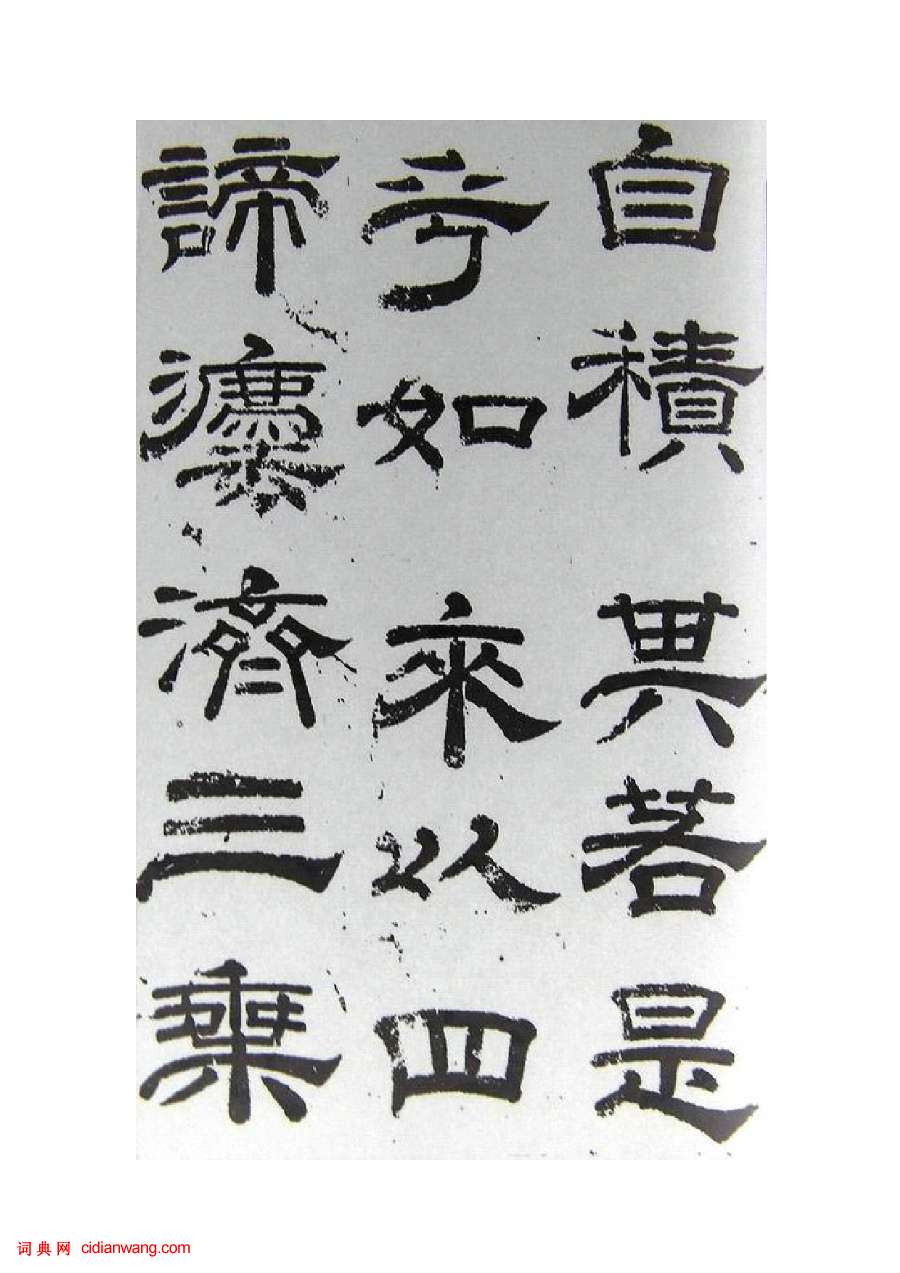 自積其若是
乎如來以四
諦灋濟三乘
词典网 cidianwang.com